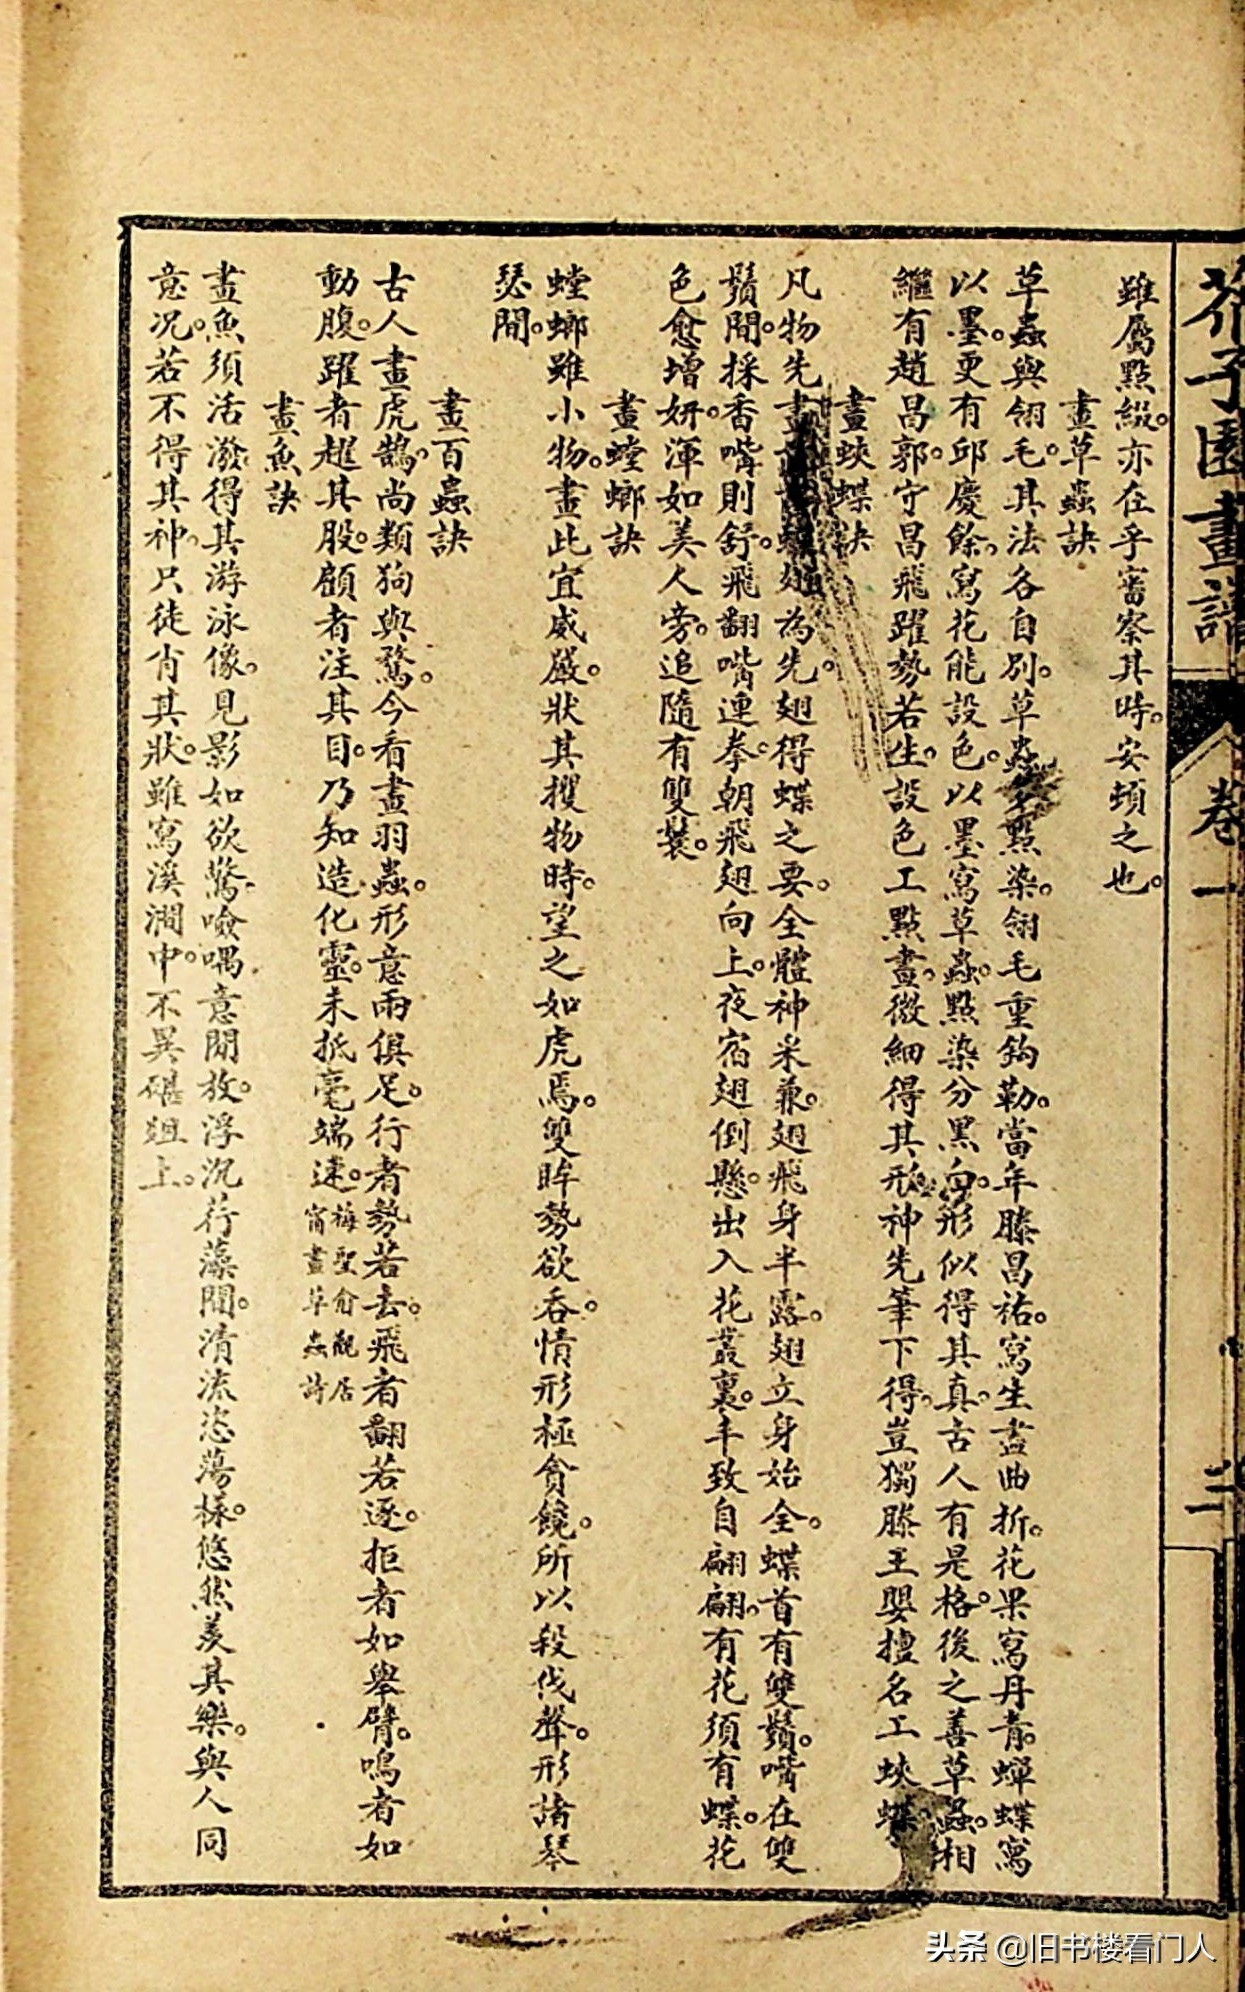 芥子園畫譜 卷一 二
雖屬點綴。亦在乎審察其時。安頓之也。
畫草蟲訣
草蟲與翎毛。其法各自別。草蟲多點染。翎毛重鈎勒。當年滕昌祐。寫生盡曲折。花果寫丹青。蟬蝶寫
以墨。更有邱慶餘。寫花能設色。以墨寫草蟲。點染分黑白。形似得其真。古人有是格。後之善草蟲。相
繼有趙昌郭。守昌飛躍勢若生。設色工點畫。微細得其形神先筆下得。豈獨滕王嬰擅名工蛺蝶
畫蛺蝶訣
凡物先畫蝶翅為先。翅得蝶之要。全體神采兼。翅飛身半露。翅立身始全。蝶首有雙鬚。嘴在雙
鬚間。採香嘴則舒。飛翻嘴連拳。朝飛翅向上。夜宿翅倒懸。出入花叢裏。丰致自翩翩。有花須有蝶。花
色愈增妍。渾如美人旁。追隨有雙鬟。
畫螳螂訣
螳螂雖小物。畫此宜威嚴。狀其攫物時。望之如虎焉。雙眸勢欲吞。情形極貪饞。所以殺伐聲。形諸琴
瑟間。
畫百蟲訣
古人畫虎鵠。尚類狗與鶩。今看畫羽蟲。形意兩俱足。行者勢若去。飛者翻若逐。拒者如舉臂。鳴者如
動腹。躍者趯其股。顧者注其目。乃知造化靈。未抵毫端速。梅聖俞觀居
甯畫草虫詩
畫魚訣
畫魚須活潑。得其游泳像。見影如欲驚。噞喁意閒放。浮沉荇藻間。清流恣蕩樣。悠然羨其樂。與人同
意況。若不得其神。只徒肖其狀。雖寫溪澗中。不異碪俎上。
头条 @旧书楼看门人